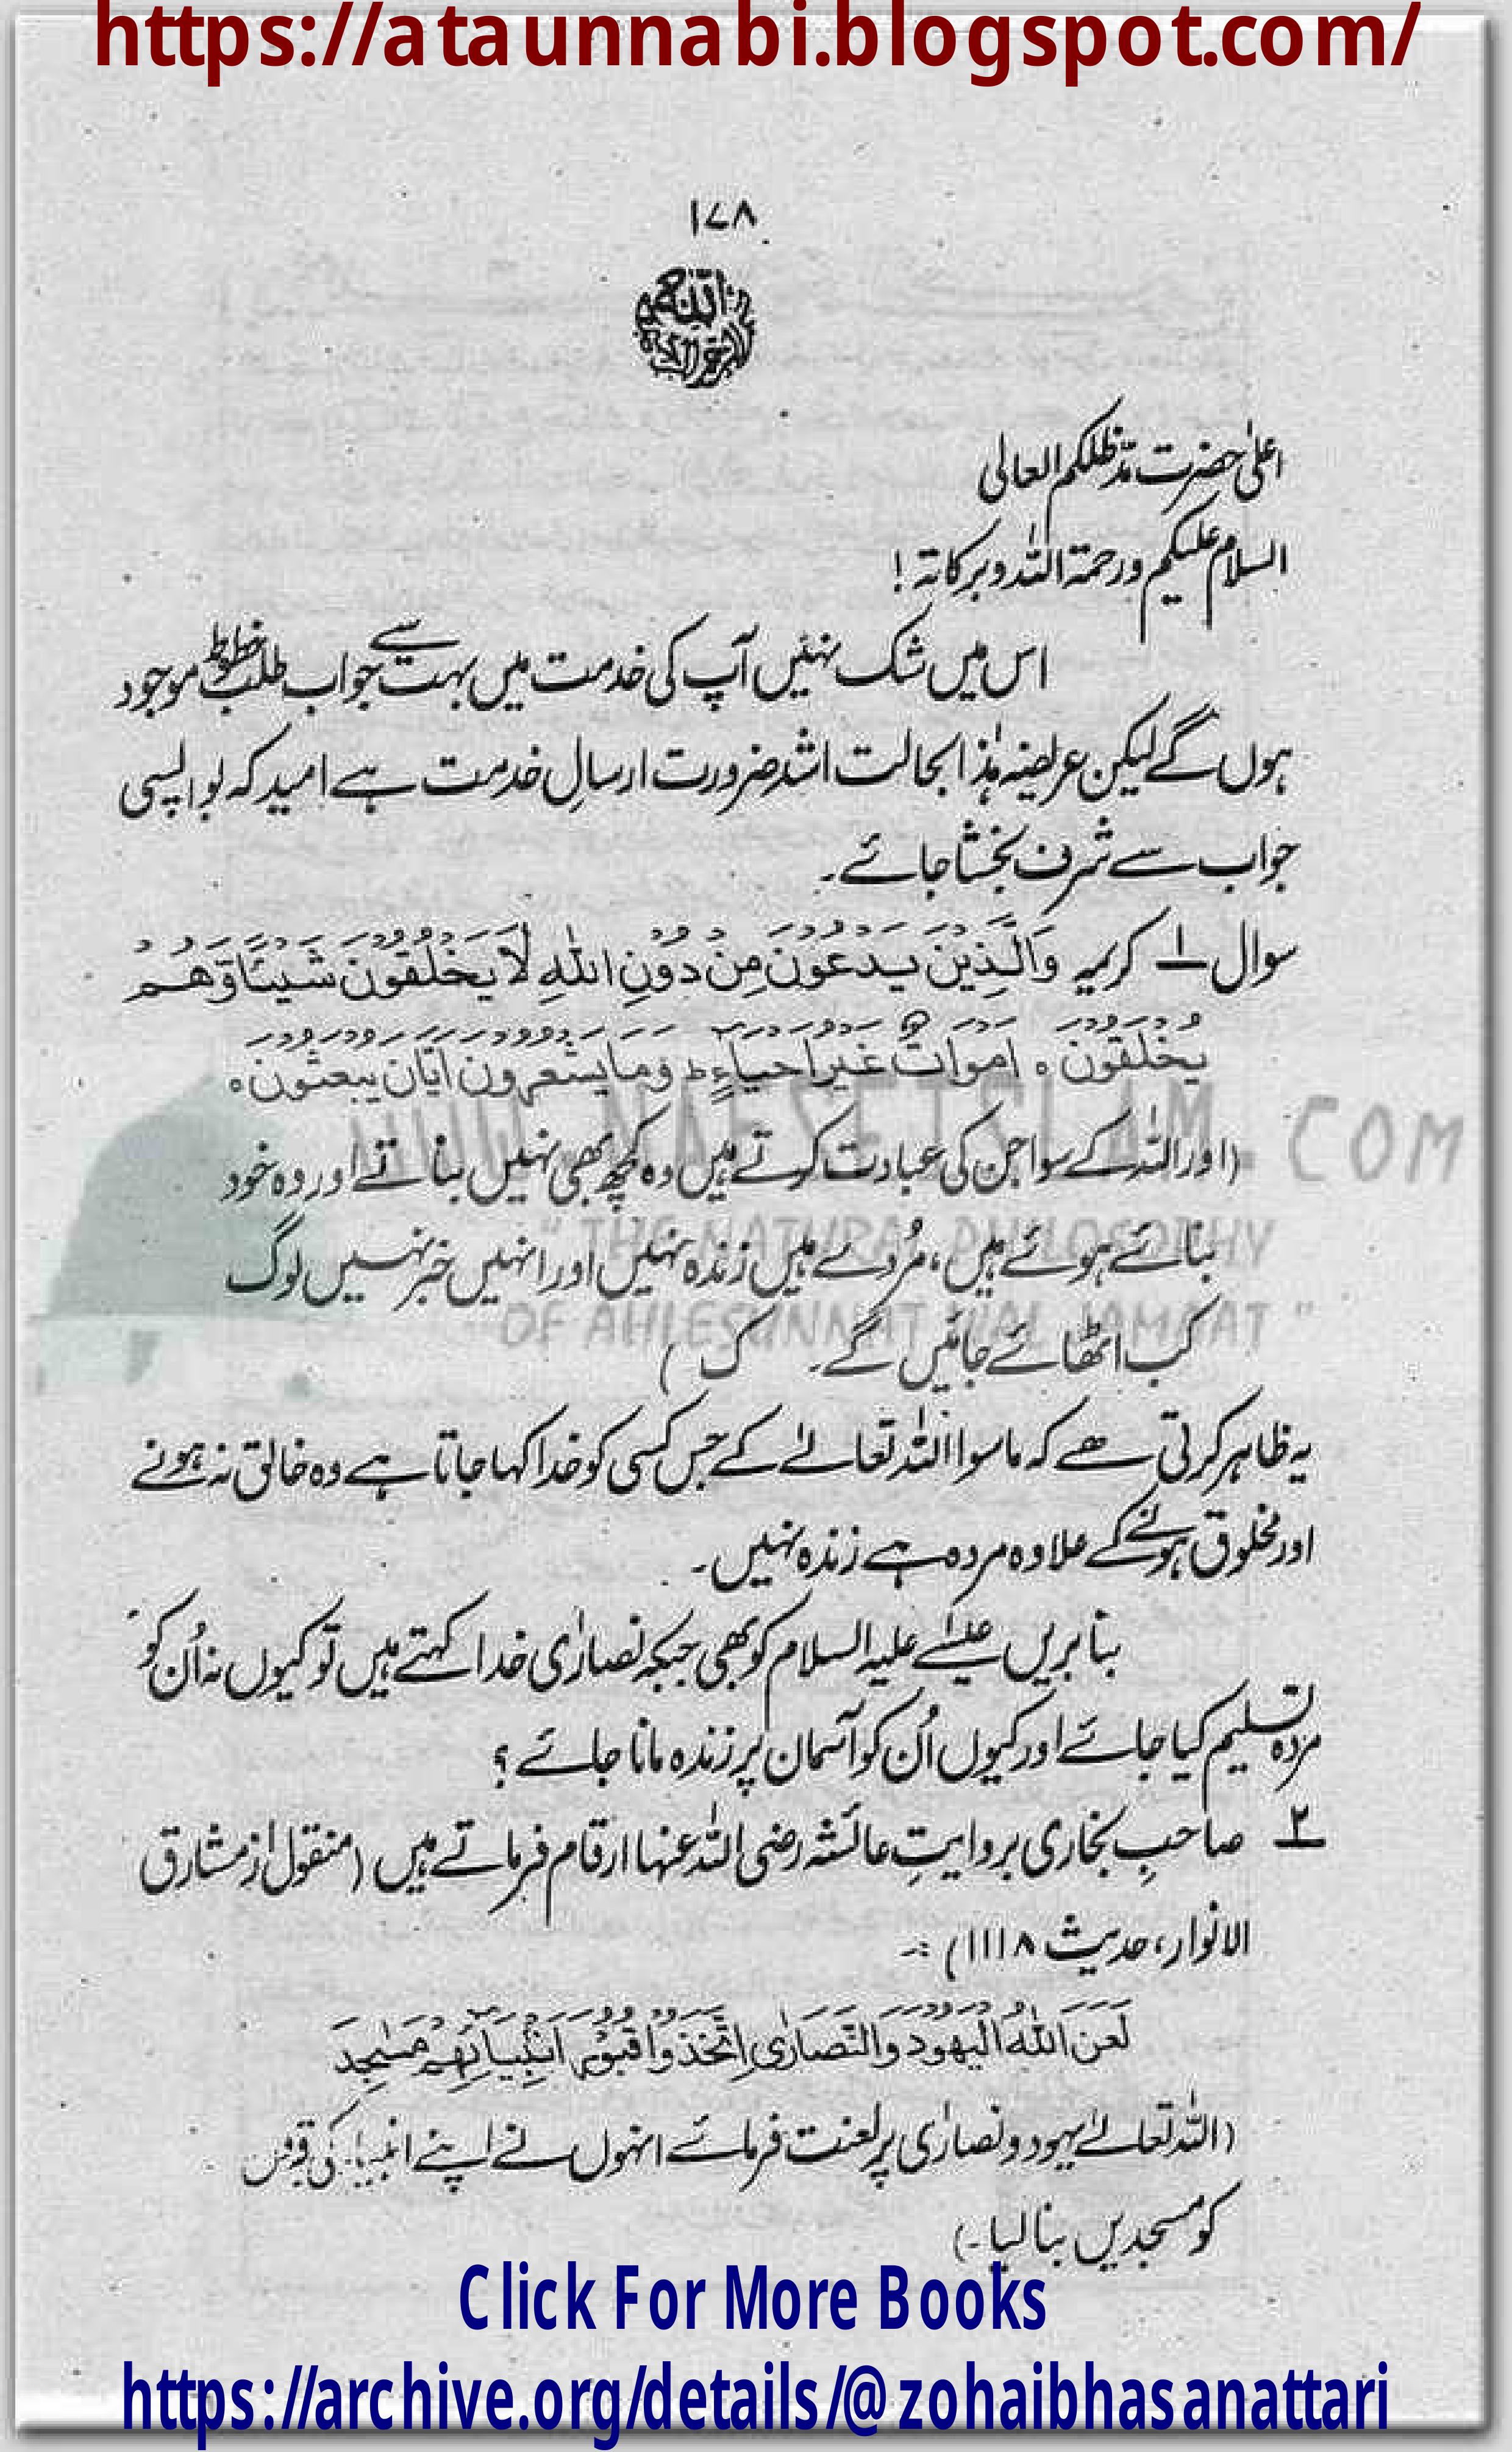 https://ataunnabi.blogspot.com/
۱۷۸
اعلیٰ حضرت مدّظلکم العالی
السلام علیکم ورحمۃ اللہ وبرکاتہ !
اس میں شک نہیں آپ کی خدمت میں بہت سے جواب طلب خطوط موجود
ہوں گے لیکن عریضہ ہٰذا بحالت اشد ضرورت ارسالِ خدمت ہے امید کہ بواپسی
جواب سے شرف بخشا جائے۔
سوال ۱ کریمہ وَالَّذِیْنَ یَدْعُوْنَ مِنْ دُوْنِ اللّٰہِ لَا یَخْلُقُوْنَ شَیْئًا وَّھُمْ
یُخْلَقُوْنَ ہ اَمْوَاتٌ غَیْرُ اَحْیَاءٍ ط وَمَا یَشْعُرُوْنَ اَیَّانَ یُبْعَثُوْنَ ہ
WWW.NAFSEISLAM.COM
(اور اللہ کے سوا جن کی عبادت کرتے ہیں وہ کچھ بھی نہیں بناتے اور وہ خود
" THE NATURAL PHILOSOPHY
بنائے ہوئے ہیں، مُردے ہیں زندہ نہیں اور انہیں خبر نہیں لوگ
OF AHLESUNNAT WAL JAMAAT "
کب اٹھائے جائیں گے۔ ک )
یہ ظاہر کرتی ھے کہ ماسوا اللہ تعالےٰ کے جس کسی کو خدا کہا جاتا ہے وہ خالق نہ ہونے
اور مخلوق ہونے کے علاوہ مردہ ہے زندہ نہیں۔
بنا بریں عیسےٰ علیہ السلام کو بھی جبکہ نصارٰی خدا کہتے ہیں تو کیوں نہ اُن کو
مردہ تسلیم کیا جائے اور کیوں اُن کو آسمان پر زندہ مانا جائے ؟
۲ صاحبِ بخاری بروایتِ عائشہ رضی اللہ عنہا ارقام فرماتے ہیں (منقول از مشارق
الانوار، حدیث ۱۱۱۸) :۔
لَعَنَ اللّٰہُ الْیَھُوْدَ وَالنَّصَارٰی اِتَّخَذُوْا قُبُوْرَ اَنْبِیَآئِھِمْ مَسٰجِدَ
(اللہ تعالےٰ یہود و نصارٰی پر لعنت فرمائے انہوں نے اپنے انبیاء کی قبروں
کو مسجدیں بنا لیا۔)
Click For More Books
https://archive.org/details/@zohaibhasanattari